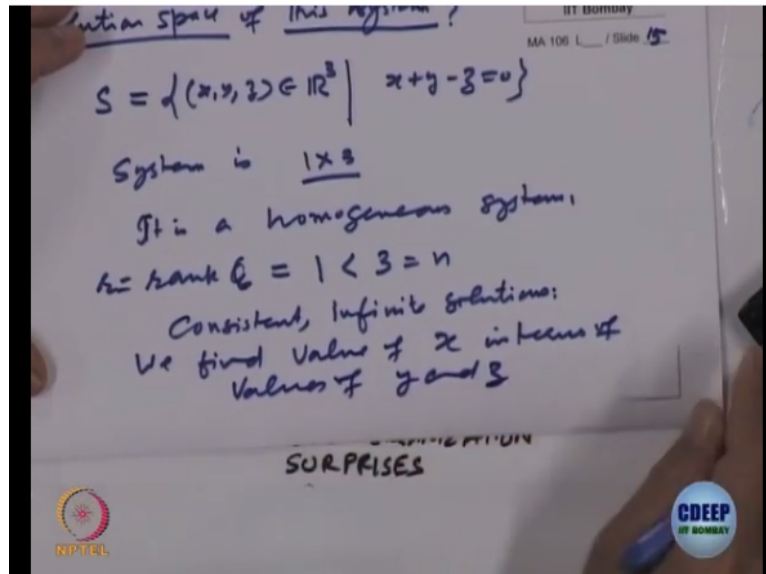 space of this system?
IIT Bombay
MA 106 L___ / Slide 15
S = {(x, y, z) ∈ ℝ³ | x+y-z=0}
System is 1×3
It is a homogeneous system.
r = rank = 1 < 3 = n
Consistent, Infinite solutions:
We find value of x in terms of
values of y and z
SURPRISES
NPTEL
CDEEP
IIT BOMBAY